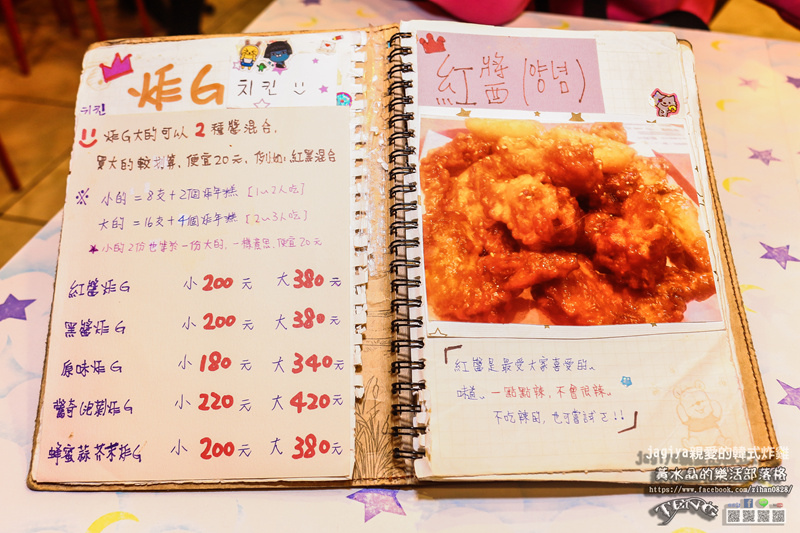 炸G 치킨
치킨
炸G大的可以 2 種醬混合,
買大的較划算, 便宜20元, 例如: 紅黑混合
※ 小的 = 8支+2個炸年糕 [1~2人吃]
大的 = 16支+4個炸年糕 [2~3人吃]
★小的2份也等於一份大的, 一樣意思, 便宜20元
紅醬炸G 小 200 元 大 380 元
黑醬炸G 小 200 元 大 380 元
原味炸G 小 180 元 大 340 元
小 220 元 大 420 元
蜂蜜蒜芥茉炸G 小 200 元 大 380 元
紅醬 (양념)
「紅醬是最受大家喜愛的、
味道、一點點辣, 不會很辣、
不吃辣的, 也可嘗試ㄛ!!」
jagiya親愛的韓式炸雞
黃水晶的樂活部落格
https://www.facebook.com/zihan0828/
TENG